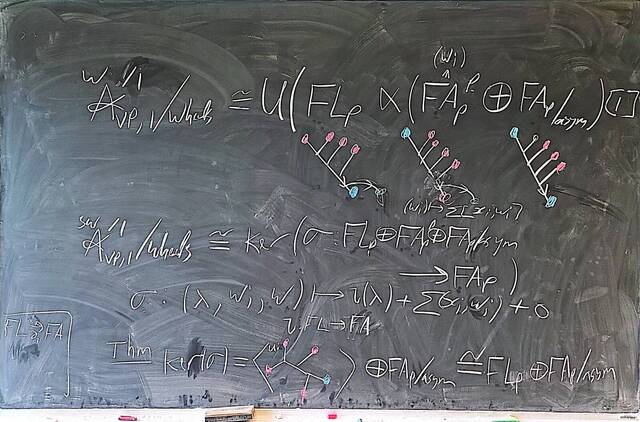 (wᵢ)
𝒜^{w/1}_{vp,1}/wheels ≅ U(FLₚ ⋉ (FAₚᵖ ⊕ FAₚ/asym)[1]
(wᵢ)→Σ[xᵢ,wᵢ]
𝒜^{sw/1}_{vp,1}/wheels ≅ ker(σ: FLₚ⊕FAₚᵖ⊕FAₚ/sym
→ FAₚ)
σ: (λ, wᵢ, w) ↦ ι(λ) + Σ[xᵢ, wᵢ] + 0
ι: FL → FA
FL → FA
Thm ker(σ) = ⟨ ⟩ ⊕ FAₚ/asym ≅ FLₚ ⊕ FAₚ/asym